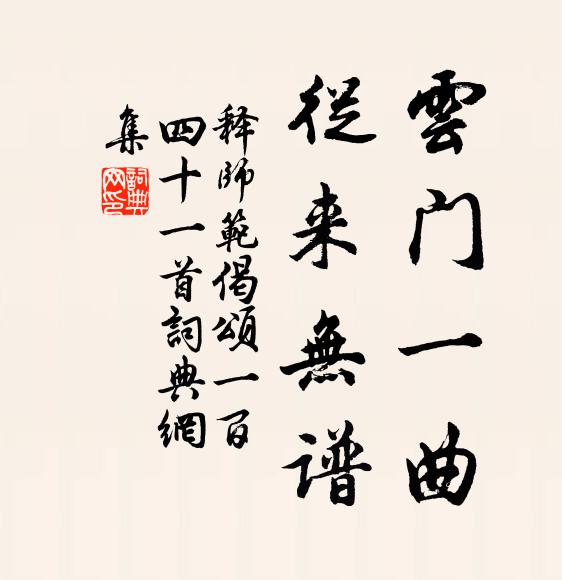 雲门一曲
從来無谱
释師範偈頌一百
四十一首詞典網
集
詞典
网印